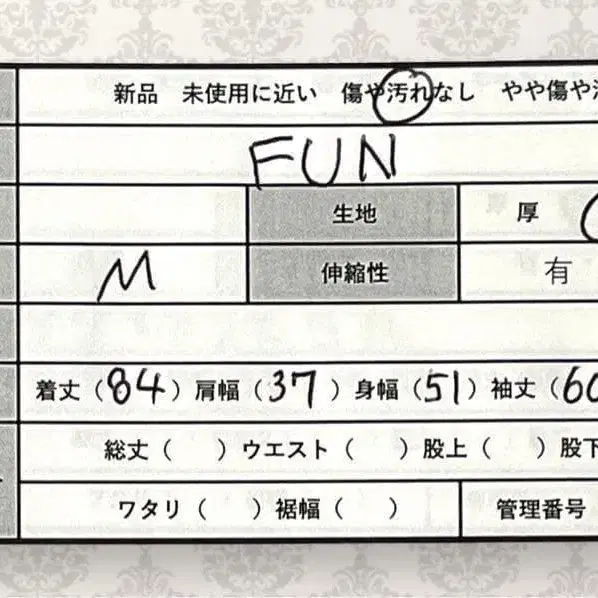 新品 未使用に近い 傷や汚れなし やや傷や汚
FUN
生地 厚
M 伸縮性 有
着丈（84）肩幅（37）身幅（51）袖丈（60
総丈（ ）ウエスト（ ）股上（ ）股下
ワタリ（ ）裾幅（ ） 管理番号